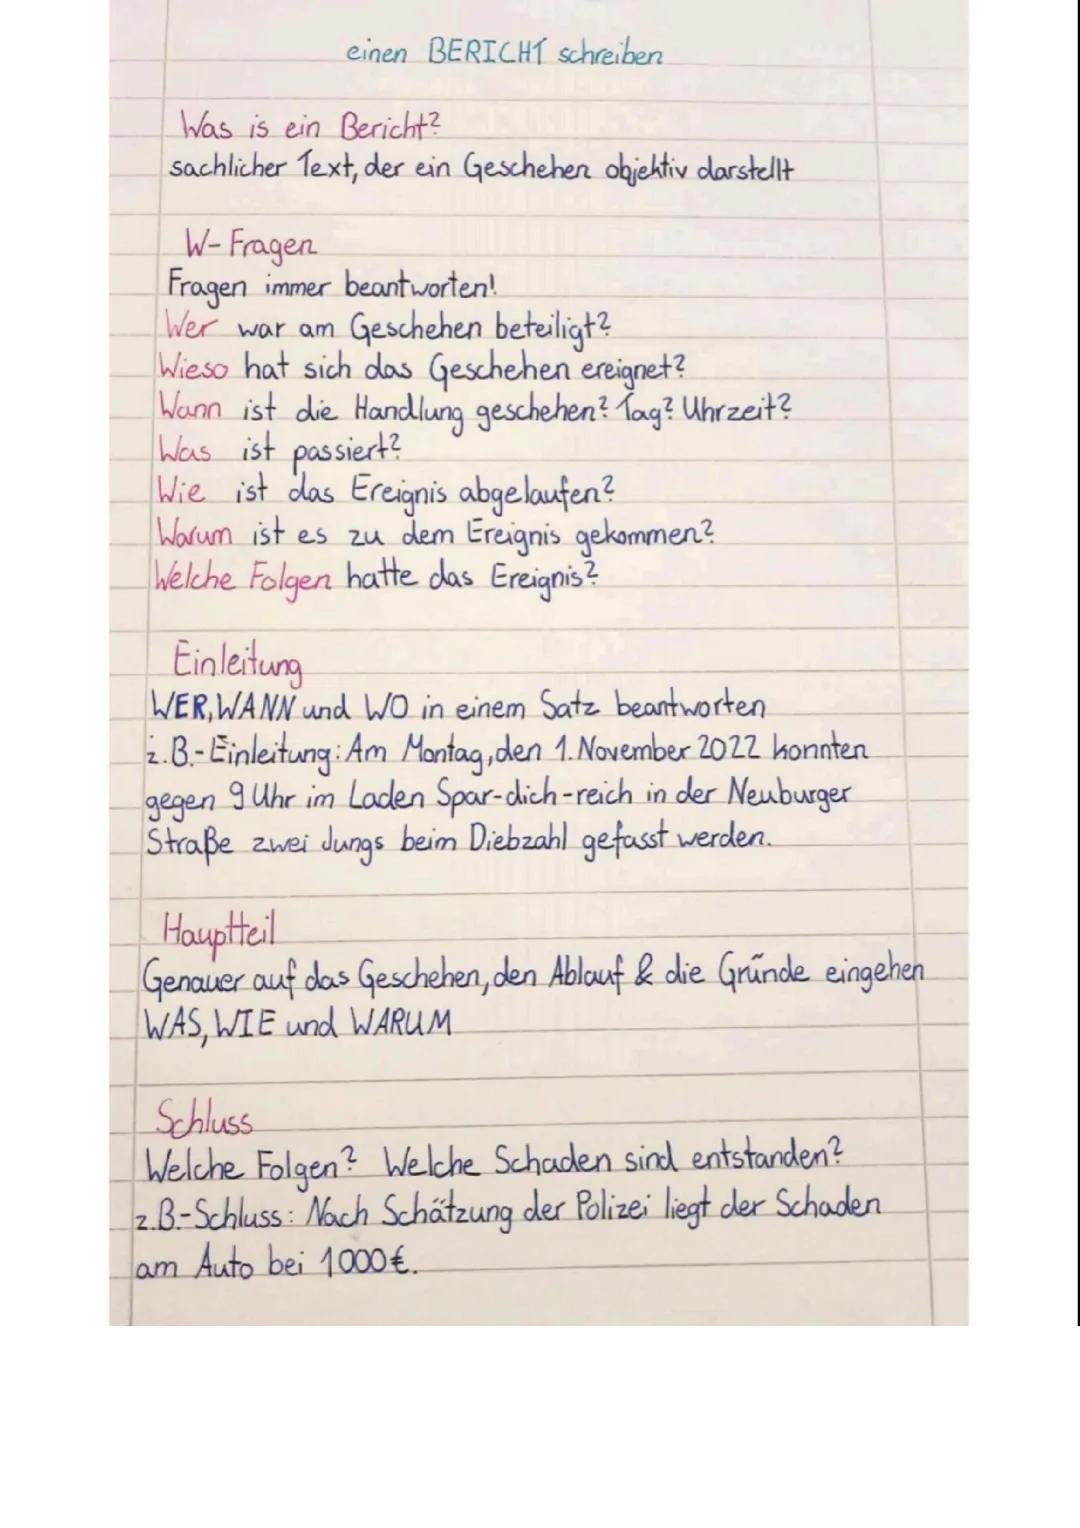 einen BERICHT schreiben
Was is ein Bericht?
sachlicher Text, der ein Geschehen objektiv darstellt
W-Fragen
Fragen immer beantworten!
Wer war am Geschehen beteiligt?
Wieso hat sich das Geschehen ereignet?
Wann ist die Handlung geschehen? Tag? Uhrzeit?
Was ist passiert?
Wie ist das Ereignis abgelaufen?
Warum ist es zu dem Ereignis gekommen?
Welche Folgen hatte das Ereignis?
Einleitung
WER, WANN und WO in einem Satz beantworten
z.B.-Einleitung: Am Montag, den 1. November 2022 konnten
gegen 9 Uhr im Laden Spar-dich-reich in der Neuburger
Straße zwei Jungs beim Diebzahl gefasst werden.
Hauptteil
Genauer auf das Geschehen, den Ablauf & die Gründe eingehen
WAS, WIE und WARUM
Schluss
Welche Folgen? Welche Schaden sind entstanden?
z.B.-Schluss: Nach Schätzung der Polizei liegt der Schaden
am Auto bei 1000€.